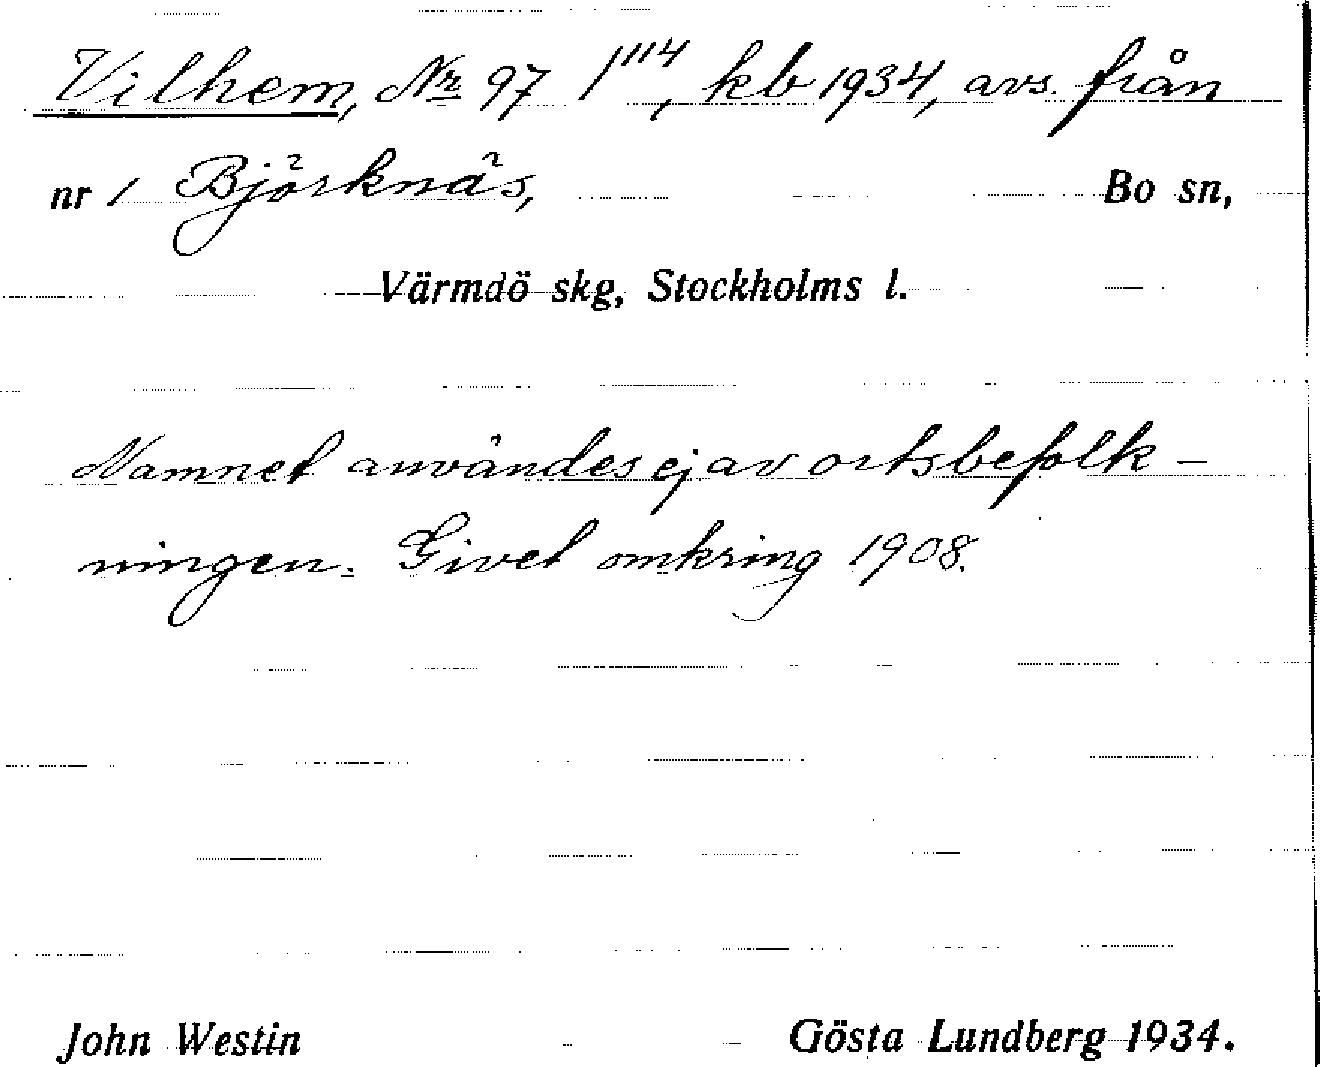 Vilhem, Nr 97 1¹¹⁴, kb 1934, avs. från
nr 1 Björknäs, Bo sn,
Värmdö skg, Stockholms l.
Namnet användes ej av ortsbefolk-
ningen. Givet omkring 1908.
John Westin Gösta Lundberg 1934.